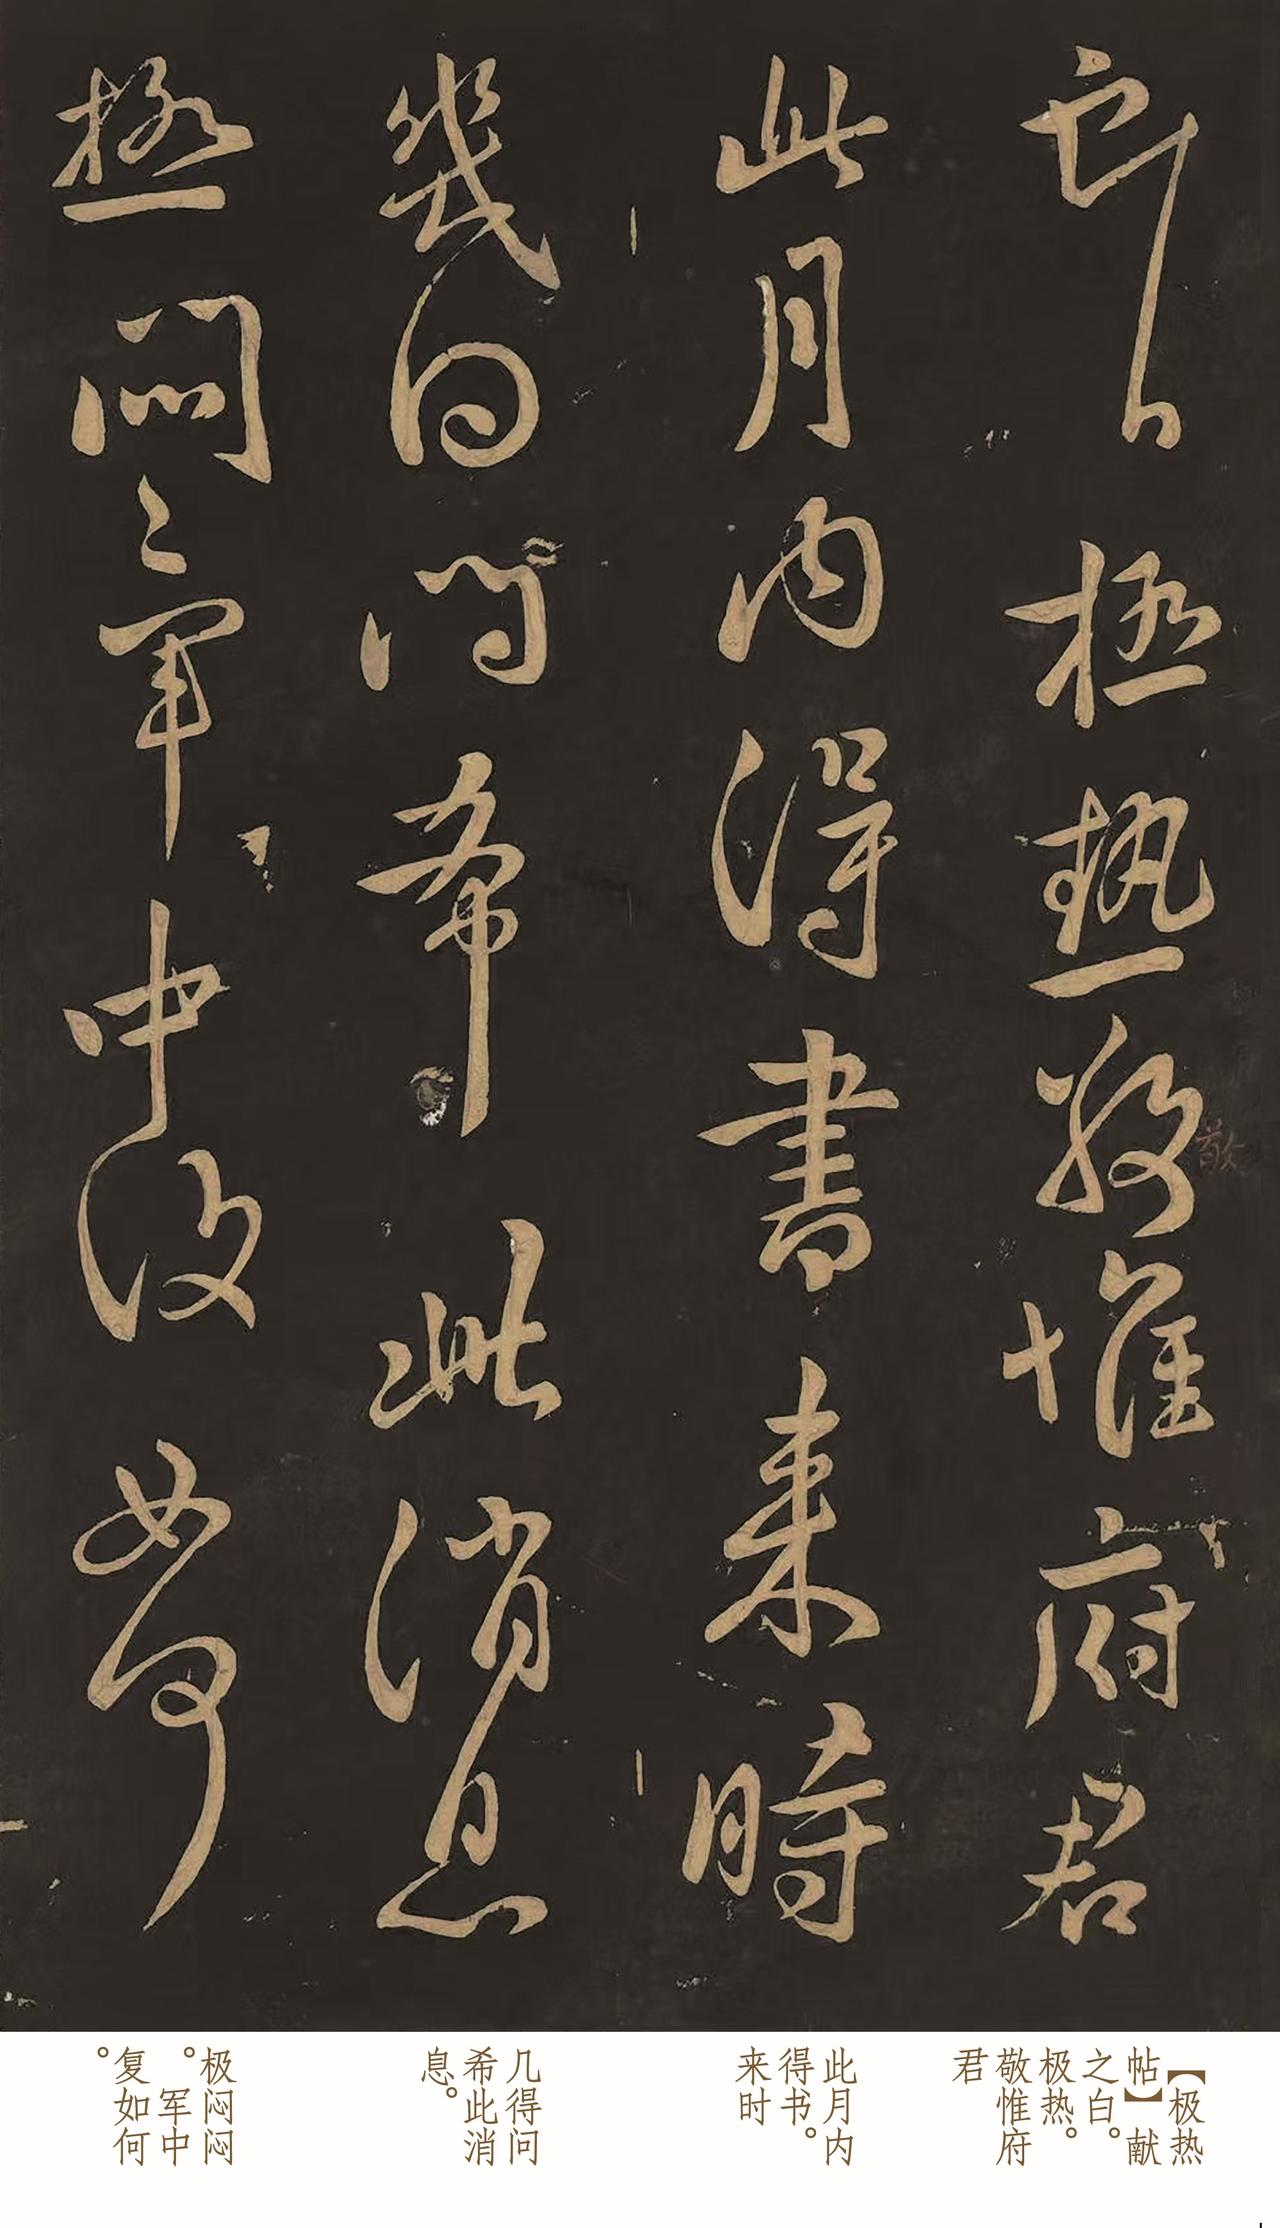 極熱敬惟府君
敬
此月内得書来時
幾問希此消息
極悶〻軍中復如何
【极热
帖】献
之白。
极热。
敬惟府
君
此月内
得书。
来时
几得问
希此消
息。
极闷闷
。军中
复如何
。